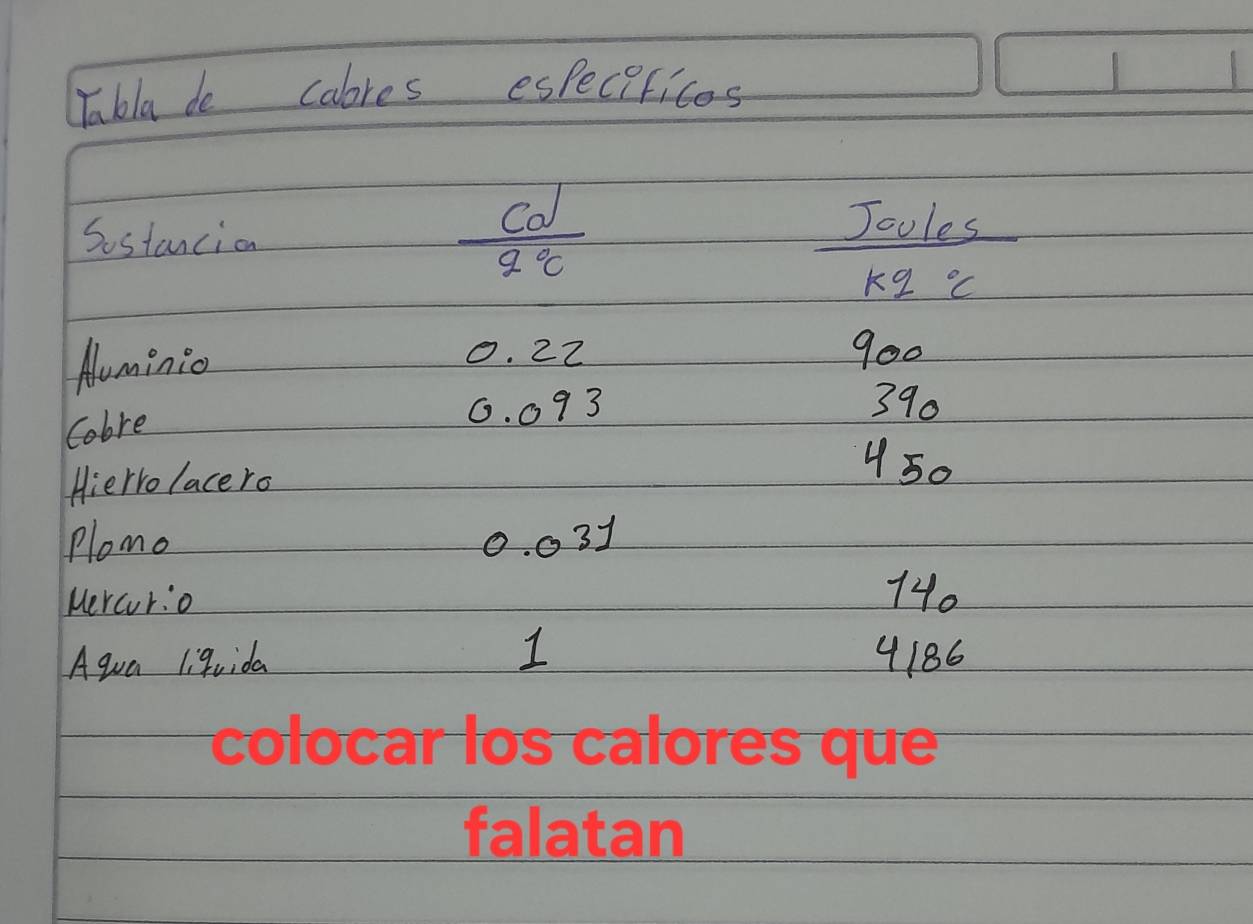 Tabla de calores especificos
Sustancia Cal/g °C Joules/Kg °C
Aluminio 0.22 900
Cobre 0.093 390
Hierro/acero 450
Plomo 0.031
Mercurio 140
Agua liquida 1 4186
colocar los calores que
falatan